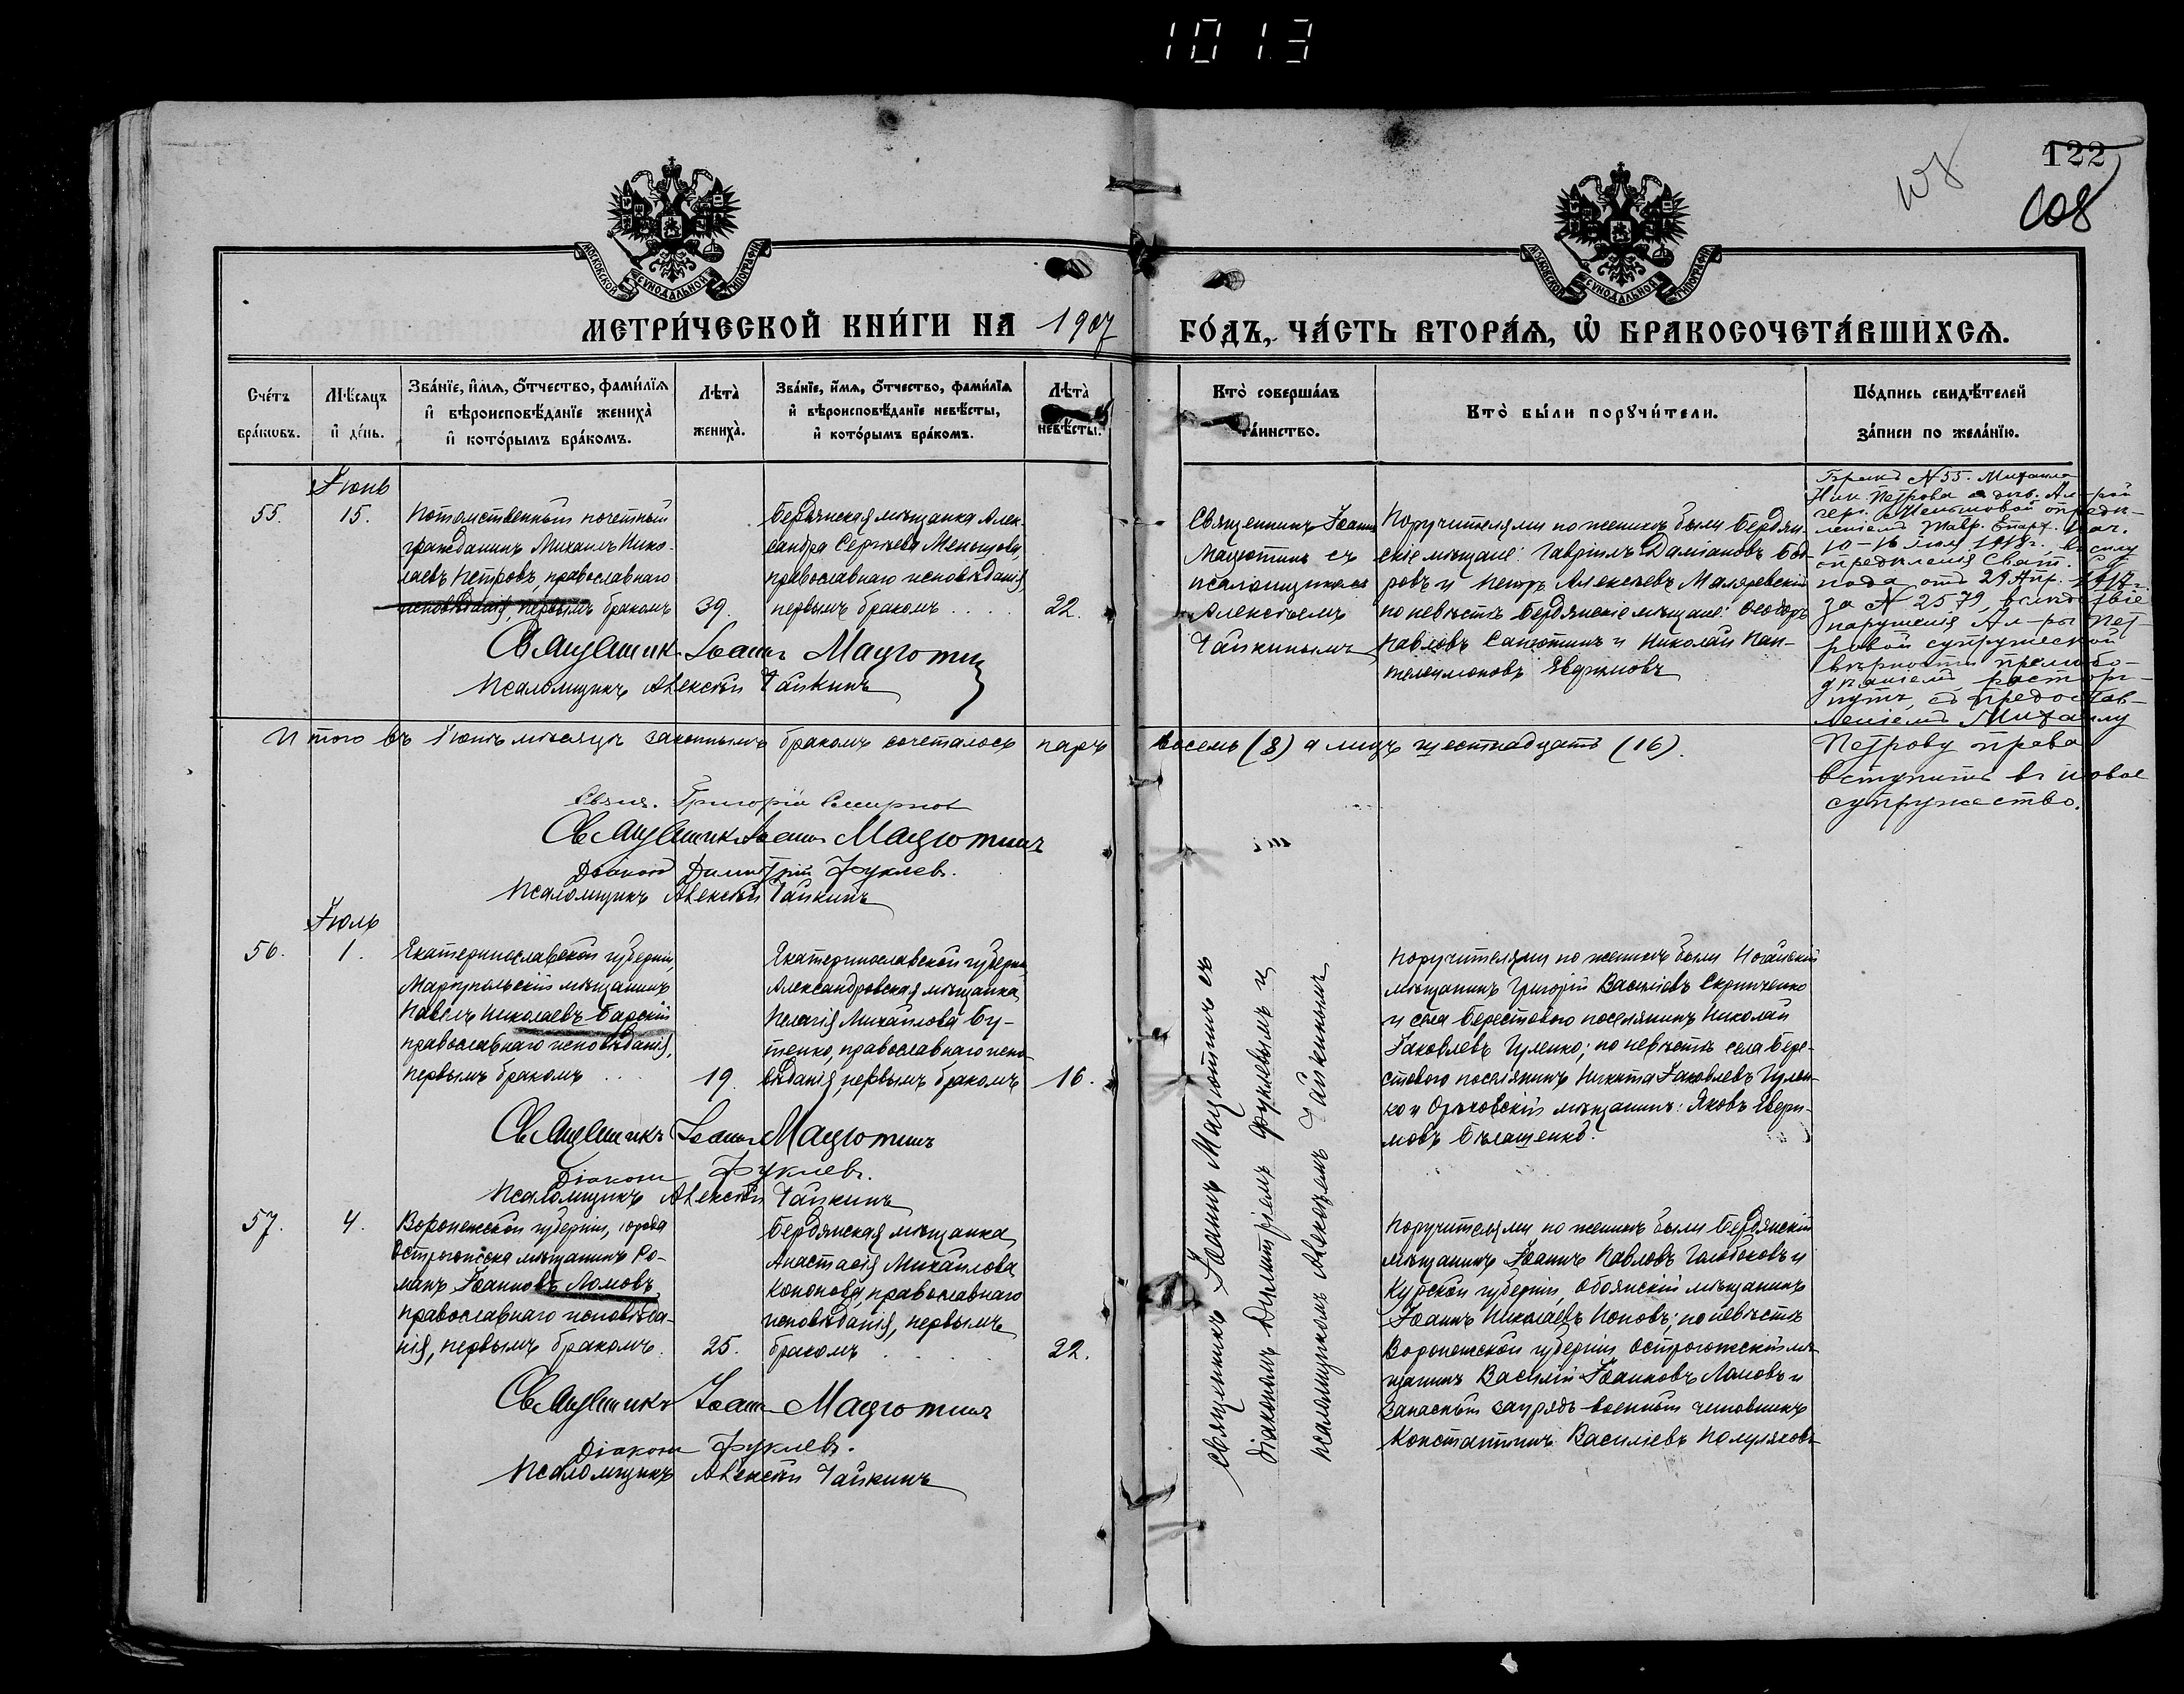 1013
122
108
108
МОСКОВСКОЙ СѴНОДАЛЬНОЙ ТИПОГРАФІИ
МОСКОВСКОЙ СѴНОДАЛЬНОЙ ТИПОГРАФІИ
МЕТРИ́ЧЕСКОЙ КНИ́ГИ НА 1907 ГО́ДЪ, ЧА́СТЬ ВТОРА́Ѧ, Ѽ БРАКОСОЧЕТА́ВШИХСѦ.
Сче́тъ бра́ковъ.
Мѣ́сяцъ и҆ де́нь.
Зва́нїе, и҆́мя, ѻ҆́тчество, фамї́лїя
и҆ вѣроисповѣ́данїе жениха̀
и҆ кото́рымъ бра́комъ.
Лѣта̀ жениха̀.
Зва́нїе, и҆́мя, ѻ҆́тчество, фамї́лїя
и҆ вѣроисповѣ́данїе невѣ́сты,
и҆ кото́рымъ бра́комъ.
Лѣта̀ невѣ́сты.
Кто̀ соверша́лъ та́инство.
Кто̀ бы́ли порꙋчи́тели.
По́дпись свидѣ́телей
за́писи по жела́нїю.
Іюнь
55.
15.
Потомственный почетный
гражданинъ Михаилъ Нико-
лаевъ Петровъ, православнаго
исповѣданія, первымъ бракомъ
39.
Бердянская мѣщанка Алек-
сандра Сергѣева Меньшова,
православнаго исповѣданія,
первымъ бракомъ . . . .
22.
Священникъ Іоаннъ
Мацютинъ съ
псаломщикомъ
Алексѣемъ
Чайкинымъ
Поручителями по женихѣ были Бердян-
скіе мѣщане: Гавріилъ Даміановъ
ровъ и Петръ Алексѣевъ Маляревскій
по невѣстѣ Бердянскіе мѣщане: Ѳеодоръ
Павловъ и Николай Пан-
телеимоновъ Евфимовъ
Бракъ № 55. Михаила
Ник. Петрова с дев. Ал-рой
Серг. Меньшовой опредѣ-
леніемъ Тавр. Епарх. Нач.
10-16 1918 г., въ силу
опредѣленія Свят. Сѵ-
нода отъ 29 Апр. 1917 г.
за № 2579, вслѣдствіе
нарушенія Ал-ры Пет-
ровой супружеской
вѣрности прелюбо-
дѣяніемъ расторг-
нутъ, съ предостав-
леніемъ Михаилу
Петрову права
вступить въ новое
супружество.
Священникъ Іоаннъ Мацютинъ
Псаломщикъ Алексѣй Чайкинъ
Итого въ Іюнѣ мѣсяцѣ законнымъ бракомъ сочеталось паръ восемь (8) а лицъ шестнадцать (16).
Свящ. Григорій Смирновъ
Священникъ Іоаннъ Мацютинъ
Діаконъ Димитрій Фуклевъ.
Псаломщикъ Алексѣй Чайкинъ
Іюль
56.
1.
Екатеринославской губерніи,
Маріупольскій мѣщанинъ
Павелъ Николаевъ Барскій
православнаго исповѣданія,
первымъ бракомъ . . .
19.
Екатеринославской губерніи,
Александровская мѣщанка
Пелагія Михайлова Бу-
тенко, православнаго испо-
вѣданія, первымъ бракомъ
16.
Священникъ Іоаннъ Мацютинъ съ
діакономъ Димитріемъ Фуклевымъ и
псаломщикомъ Алексѣемъ Чайкинымъ
Поручителями по женихѣ были Ногайскій
мѣщанинъ Григорій Василіевъ Скрипченко
и села Берестоваго поселянинъ Николай
Іаковлевъ Цуленко; по невѣстѣ села Бере-
стоваго поселянинъ Никита Іаковлевъ Цулен-
ко и Орѣховскій мѣщанинъ: Яковъ
мовъ Бѣлашенко.
Священникъ Іоаннъ Мацютинъ
Діаконъ Фуклевъ.
Псаломщикъ Алексѣй Чайкинъ
57.
4.
Воронежской губерніи, города
Острогожска мѣщанинъ Ро-
манъ Іоанновъ Ломовъ,
православнаго исповѣда-
нія, первымъ бракомъ.
25.
Бердянская мѣщанка
Анастасія Михайлова
Кононова, православнаго
исповѣданія, первымъ
бракомъ . . . .
22.
Поручителями по женихѣ были Бердянскій
мѣщанинъ Іоаннъ Павловъ и
Курской губерніи, Обоянскій мѣщанинъ
Іоаннъ Николаевъ Поповъ; по невѣстѣ
Воронежской губерніи Острогожскій мѣ-
щанинъ Василій Іоанновъ Ломовъ и
запасный заурядъ-военный чиновникъ
Константинъ Василіевъ Полуляховъ
Священникъ Іоаннъ Мацютинъ
Діаконъ Фуклевъ.
Псаломщикъ Алексѣй Чайкинъ